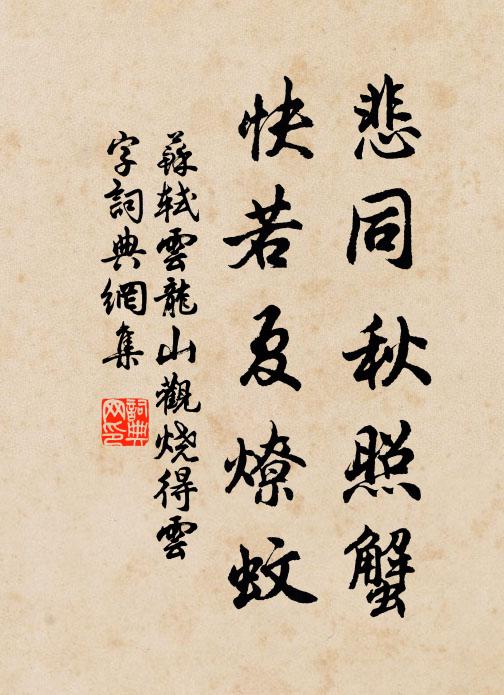 悲同秋照蟹
快若夏燎蚊
蘇軾雲龍山觀烧得雲
字詞典網集
詞典
网印